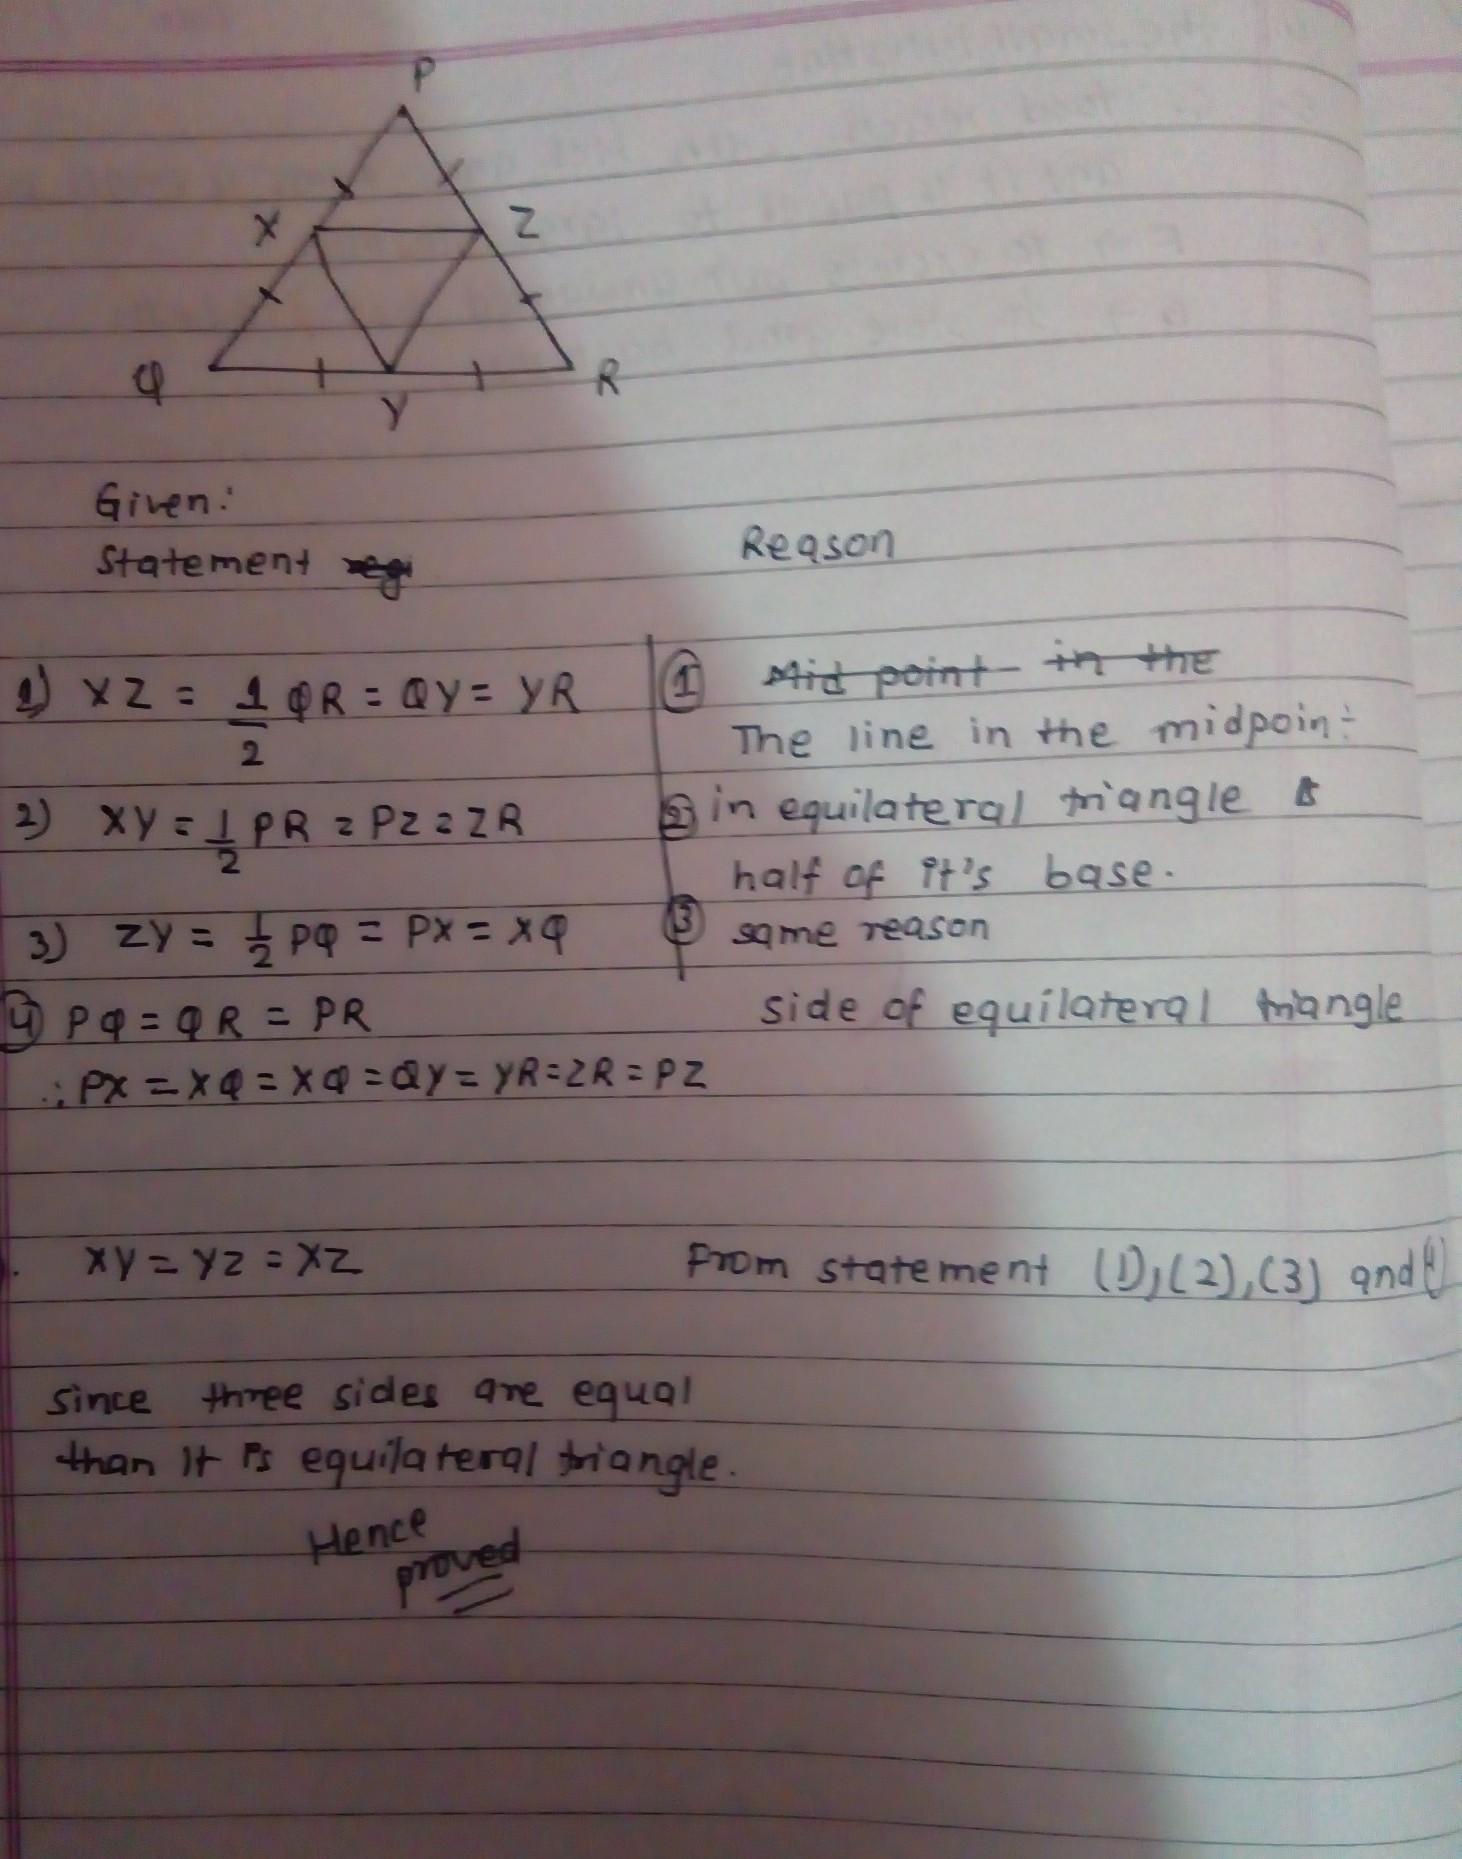 P
X
Z
Q
R
Y
Given:
Statement
Reason
1) XZ = 1/2 QR = QY = YR
① Mid point in the
The line in the midpoint
2) XY = 1/2 PR = PZ = ZR
② in equilateral triangle is
half of it's base.
3) ZY = 1/2 PQ = PX = XQ
③ same reason
④ PQ = QR = PR
side of equilateral triangle
∴ PX = XQ = XQ = QY = YR = ZR = PZ
XY = YZ = XZ
From statement (1), (2), (3) and (4)
since three sides are equal
than it is equilateral triangle.
Hence
proved